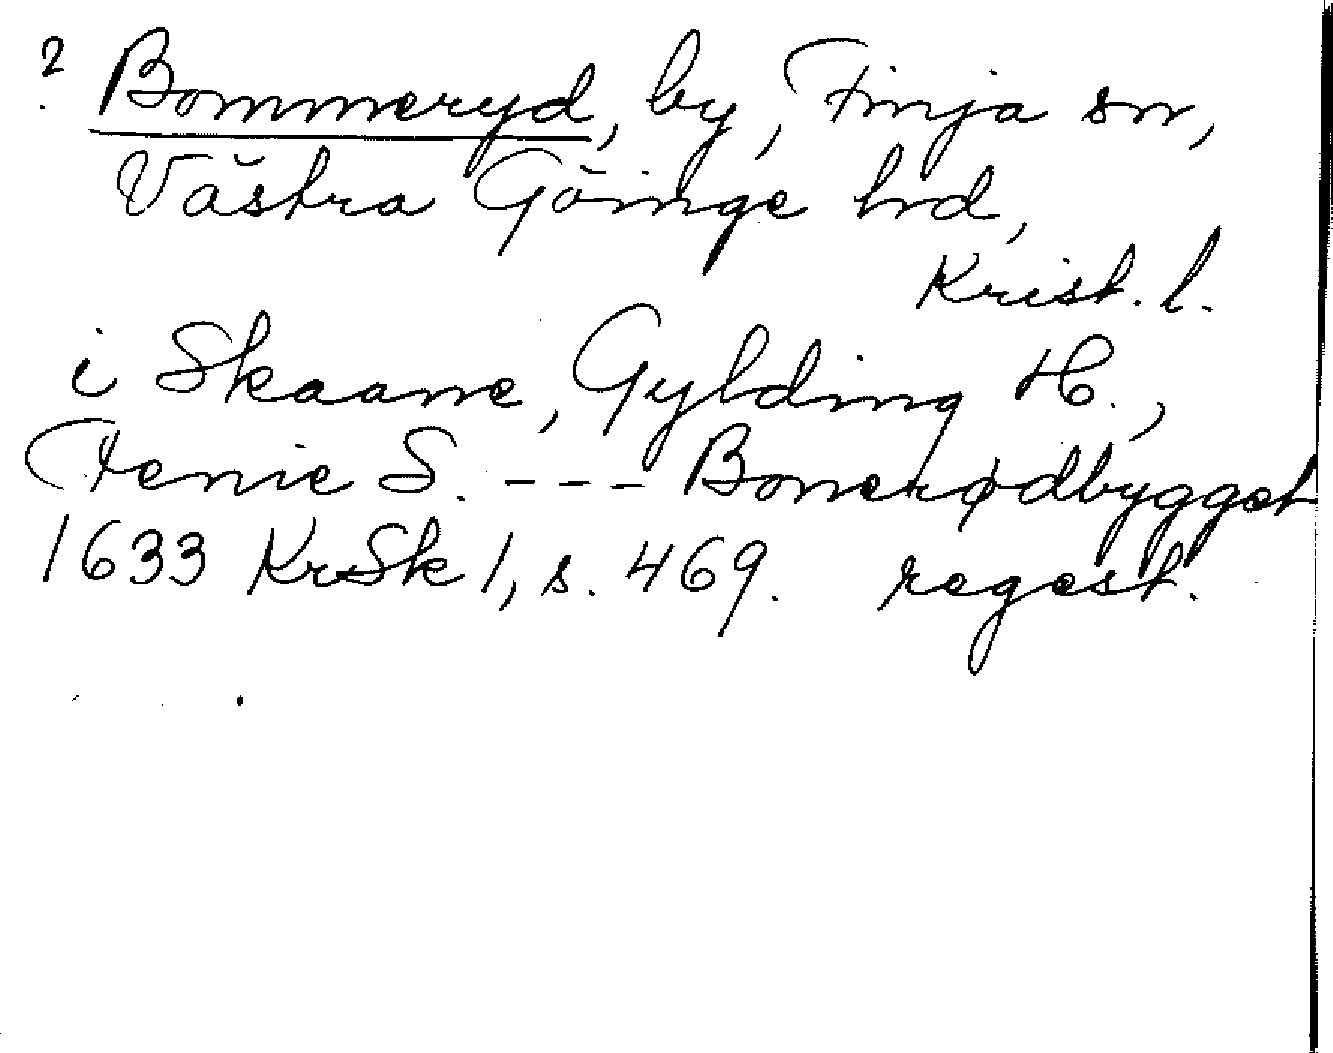 ? Bommeryd, by, Finja sn,
Västra Göinge hd,
Krist. l.
i Skaane, Gylding H.,
Fenie S. --- Bonerødbygget
1633 KrSk 1, s. 469. regest.